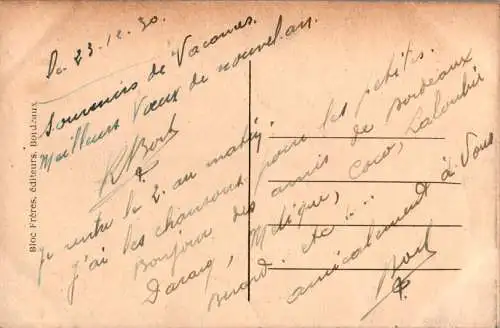 Le 23.12.30.
Souvenirs de Vacances
Meilleurs Vœux de nouvel an.
je rentre le 2 au matin,
j'ai les chansons pour les petites.
Bonjour des amis de Bordeaux
Daracq, Melique, Coco, Laloubie
Benard. etc....
amicalement à Vous
Bloc Frères, éditeurs, Bordeaux